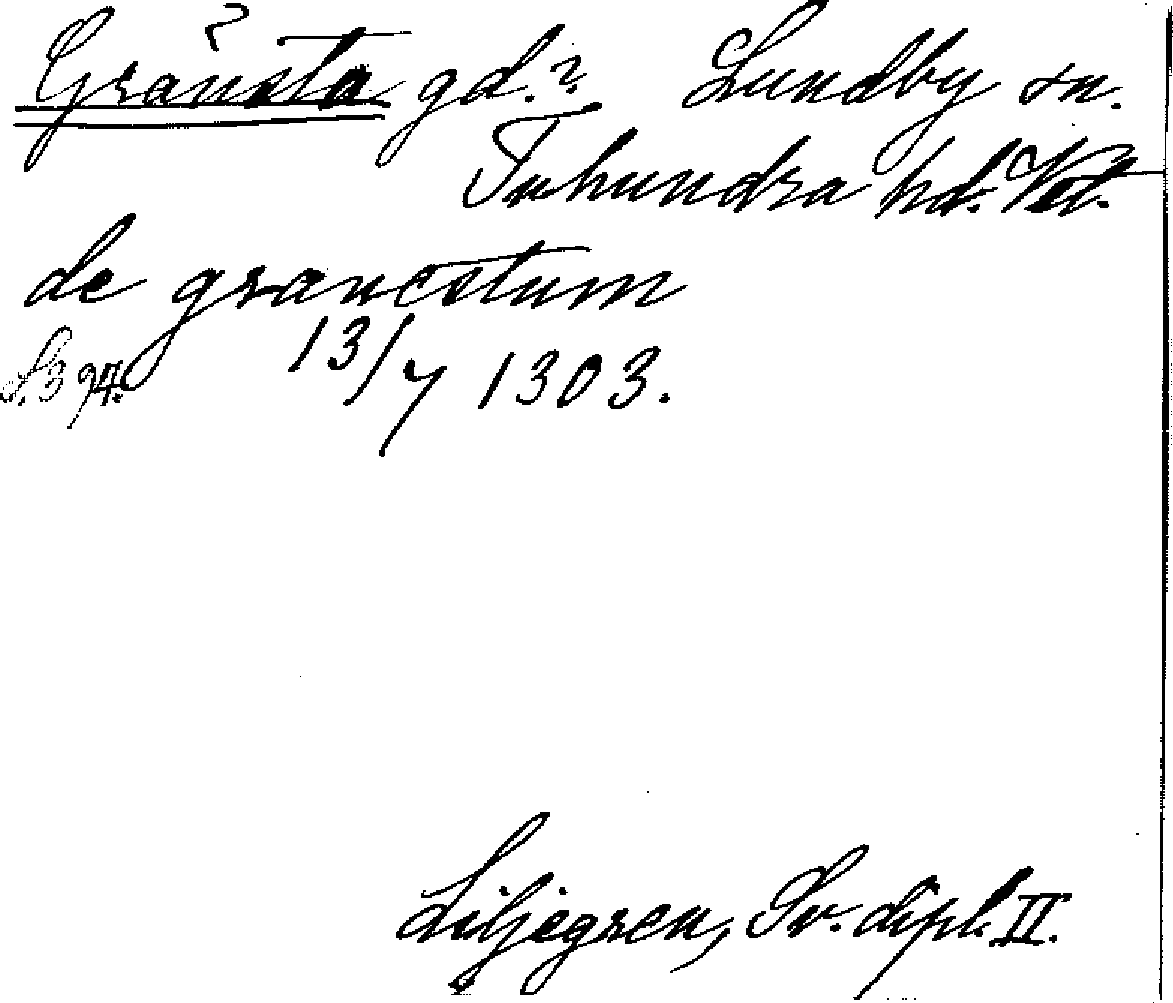 ?
Gränsta gd.? Lundby sn.
Tuhundra hd. Vstl.
de grancstum
S. 394. 13/7 1303.
Liljegren, Sv. dipl. II.